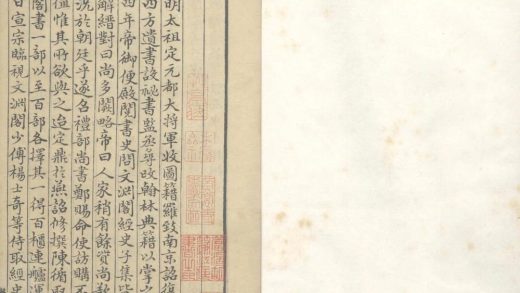 明太祖定元都大將軍收圖籍羅致南京詔復
四方遺書設祕書監丞尋改翰林典籍以掌
四年帝御便殿閱書史問文淵閣經史子集皆
解縉對曰尚多闕略帝曰人家稍有餘貲尚
況於朝廷乎遂召禮部尚書鄭賜命使訪購
值惟其所欲與之迨定鼎於燕詔修撰陳循取
閣書一部以至百部各擇其一得百櫃運艫
日宣宗臨視文淵閣少傅楊士奇等侍取經史